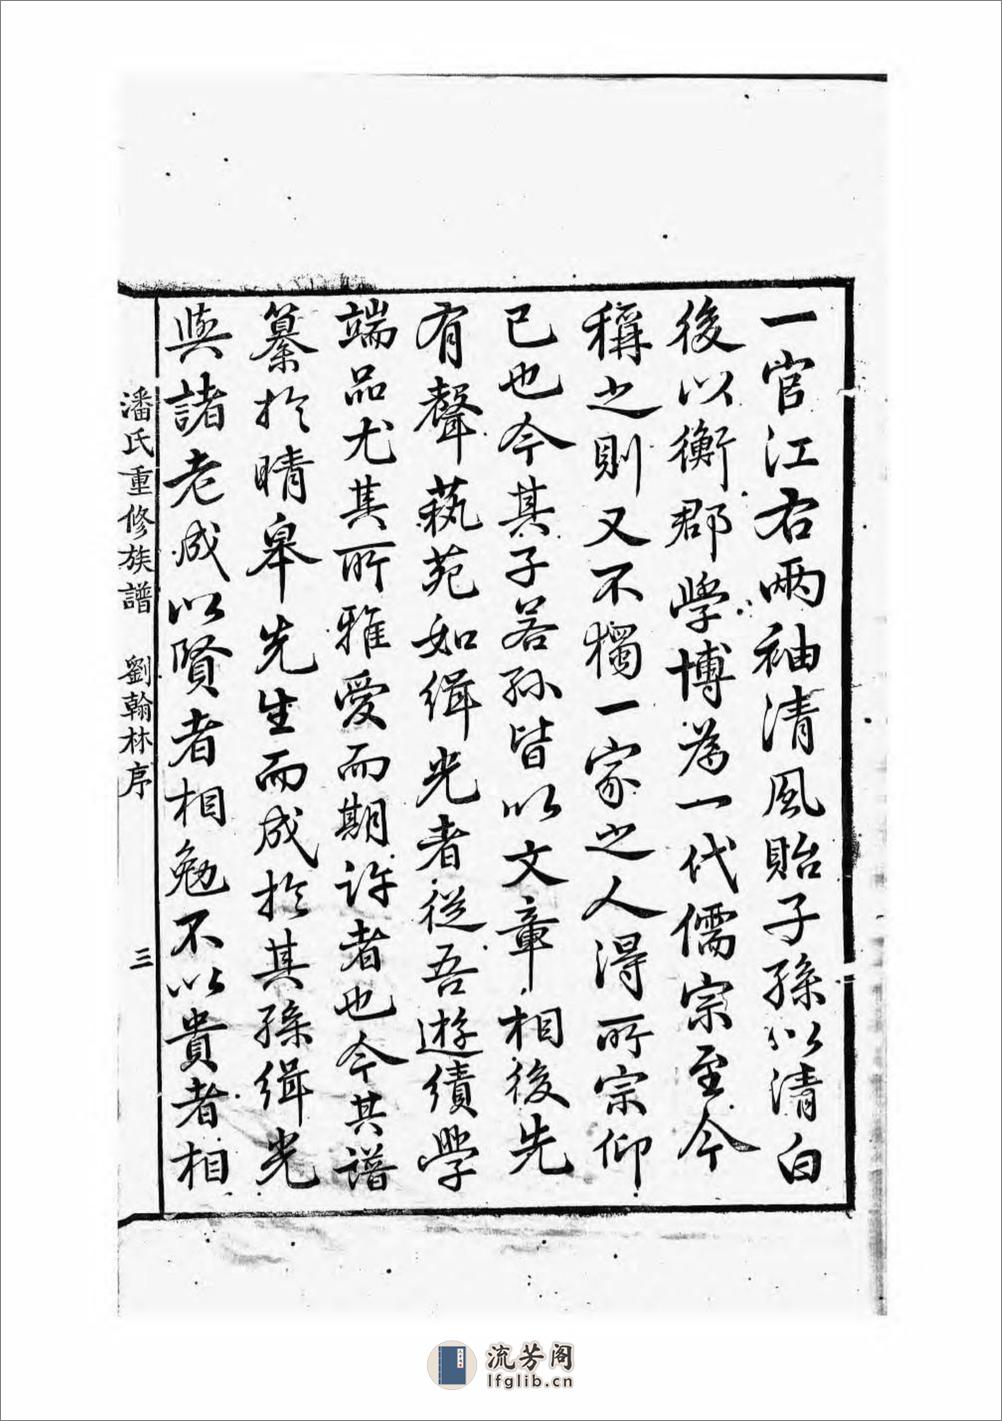 一官江右兩袖清風貽子孫以清白
後以衡郡學博為一代儒宗至今
稱之則又不獨一家之人得所宗仰
已也今其子若孫皆以文章相後先
有聲藝苑如緝光者從吾遊績學
端品尤其所雅愛而期許者也今其譜
纂於晴皋先生而成於其孫緝光
與諸老成以賢者相勉不以貴者相
潘氏重修族譜 劉翰林序 三
流芳阁
lfglib.cn